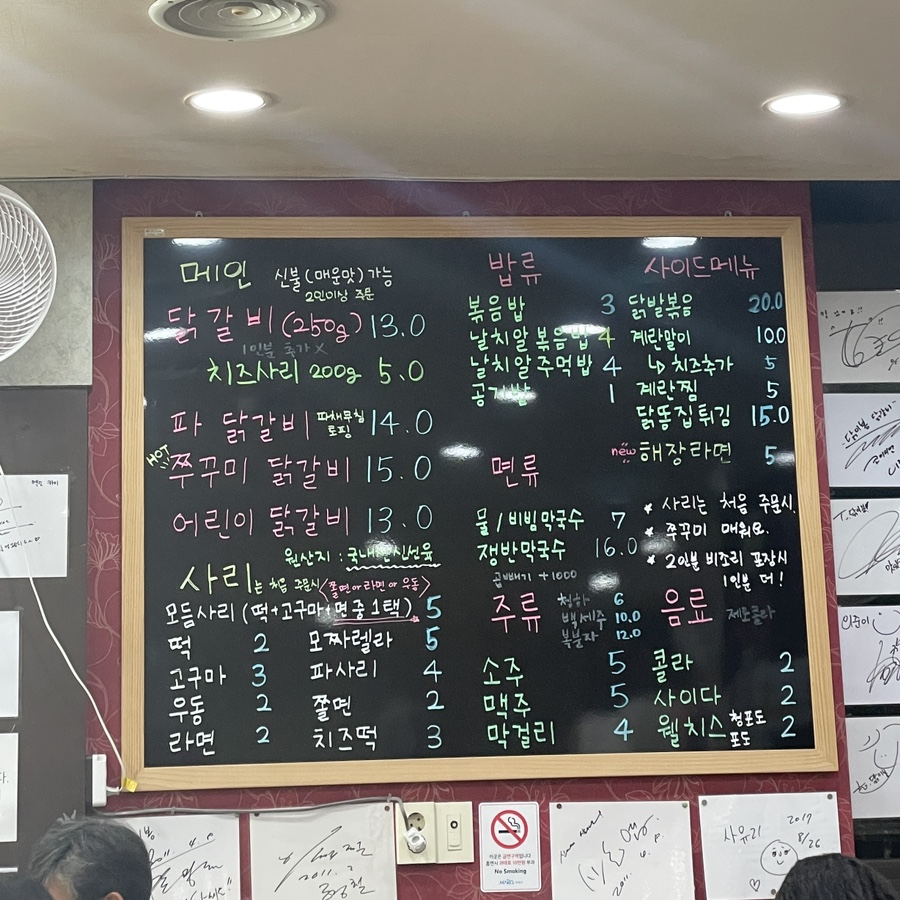 메인 신불(매운맛)가능
2인이상 주문
닭갈비(250g) 13.0
1인분 추가 X
치즈사리 200g 5.0
파 닭갈비 파채무침 토핑 14.0
HOT 쭈꾸미 닭갈비 15.0
어린이 닭갈비 13.0
원산지 : 국내산신선육
사리는 처음 주문시 <쫄면 or 라면 or 우동>
모듬사리 (떡+고구마+면 중 1택) 5
떡 2 모짜렐라 5
고구마 3 파사리 4
우동 2 쫄면 2
라면 2 치즈떡 3
밥류
볶음밥 3
날치알볶음밥 4
날치알주먹밥 4
공기밥 1
면류
물/비빔막국수 7
쟁반막국수 16.0
곱빼기 +1000
주류
청하 6
백세주 10.0
복분자 12.0
소주 5
맥주 5
막걸리 4
사이드메뉴
닭발볶음 20.0
계란말이 10.0
↳ 치즈추가 5
계란찜 5
닭똥집튀김 15.0
new 해장라면 5
* 사리는 처음 주문시.
* 쭈꾸미 매워요.
* 2인분 비조리 포장시
1인분 더!
음료 제로콜라
콜라 2
사이다 2
웰치스 청포도 포도 2
이곳은 금연구역입니다
No Smoking
2011. 4.
2011.
2011. 6.
사유리 2017
8/26